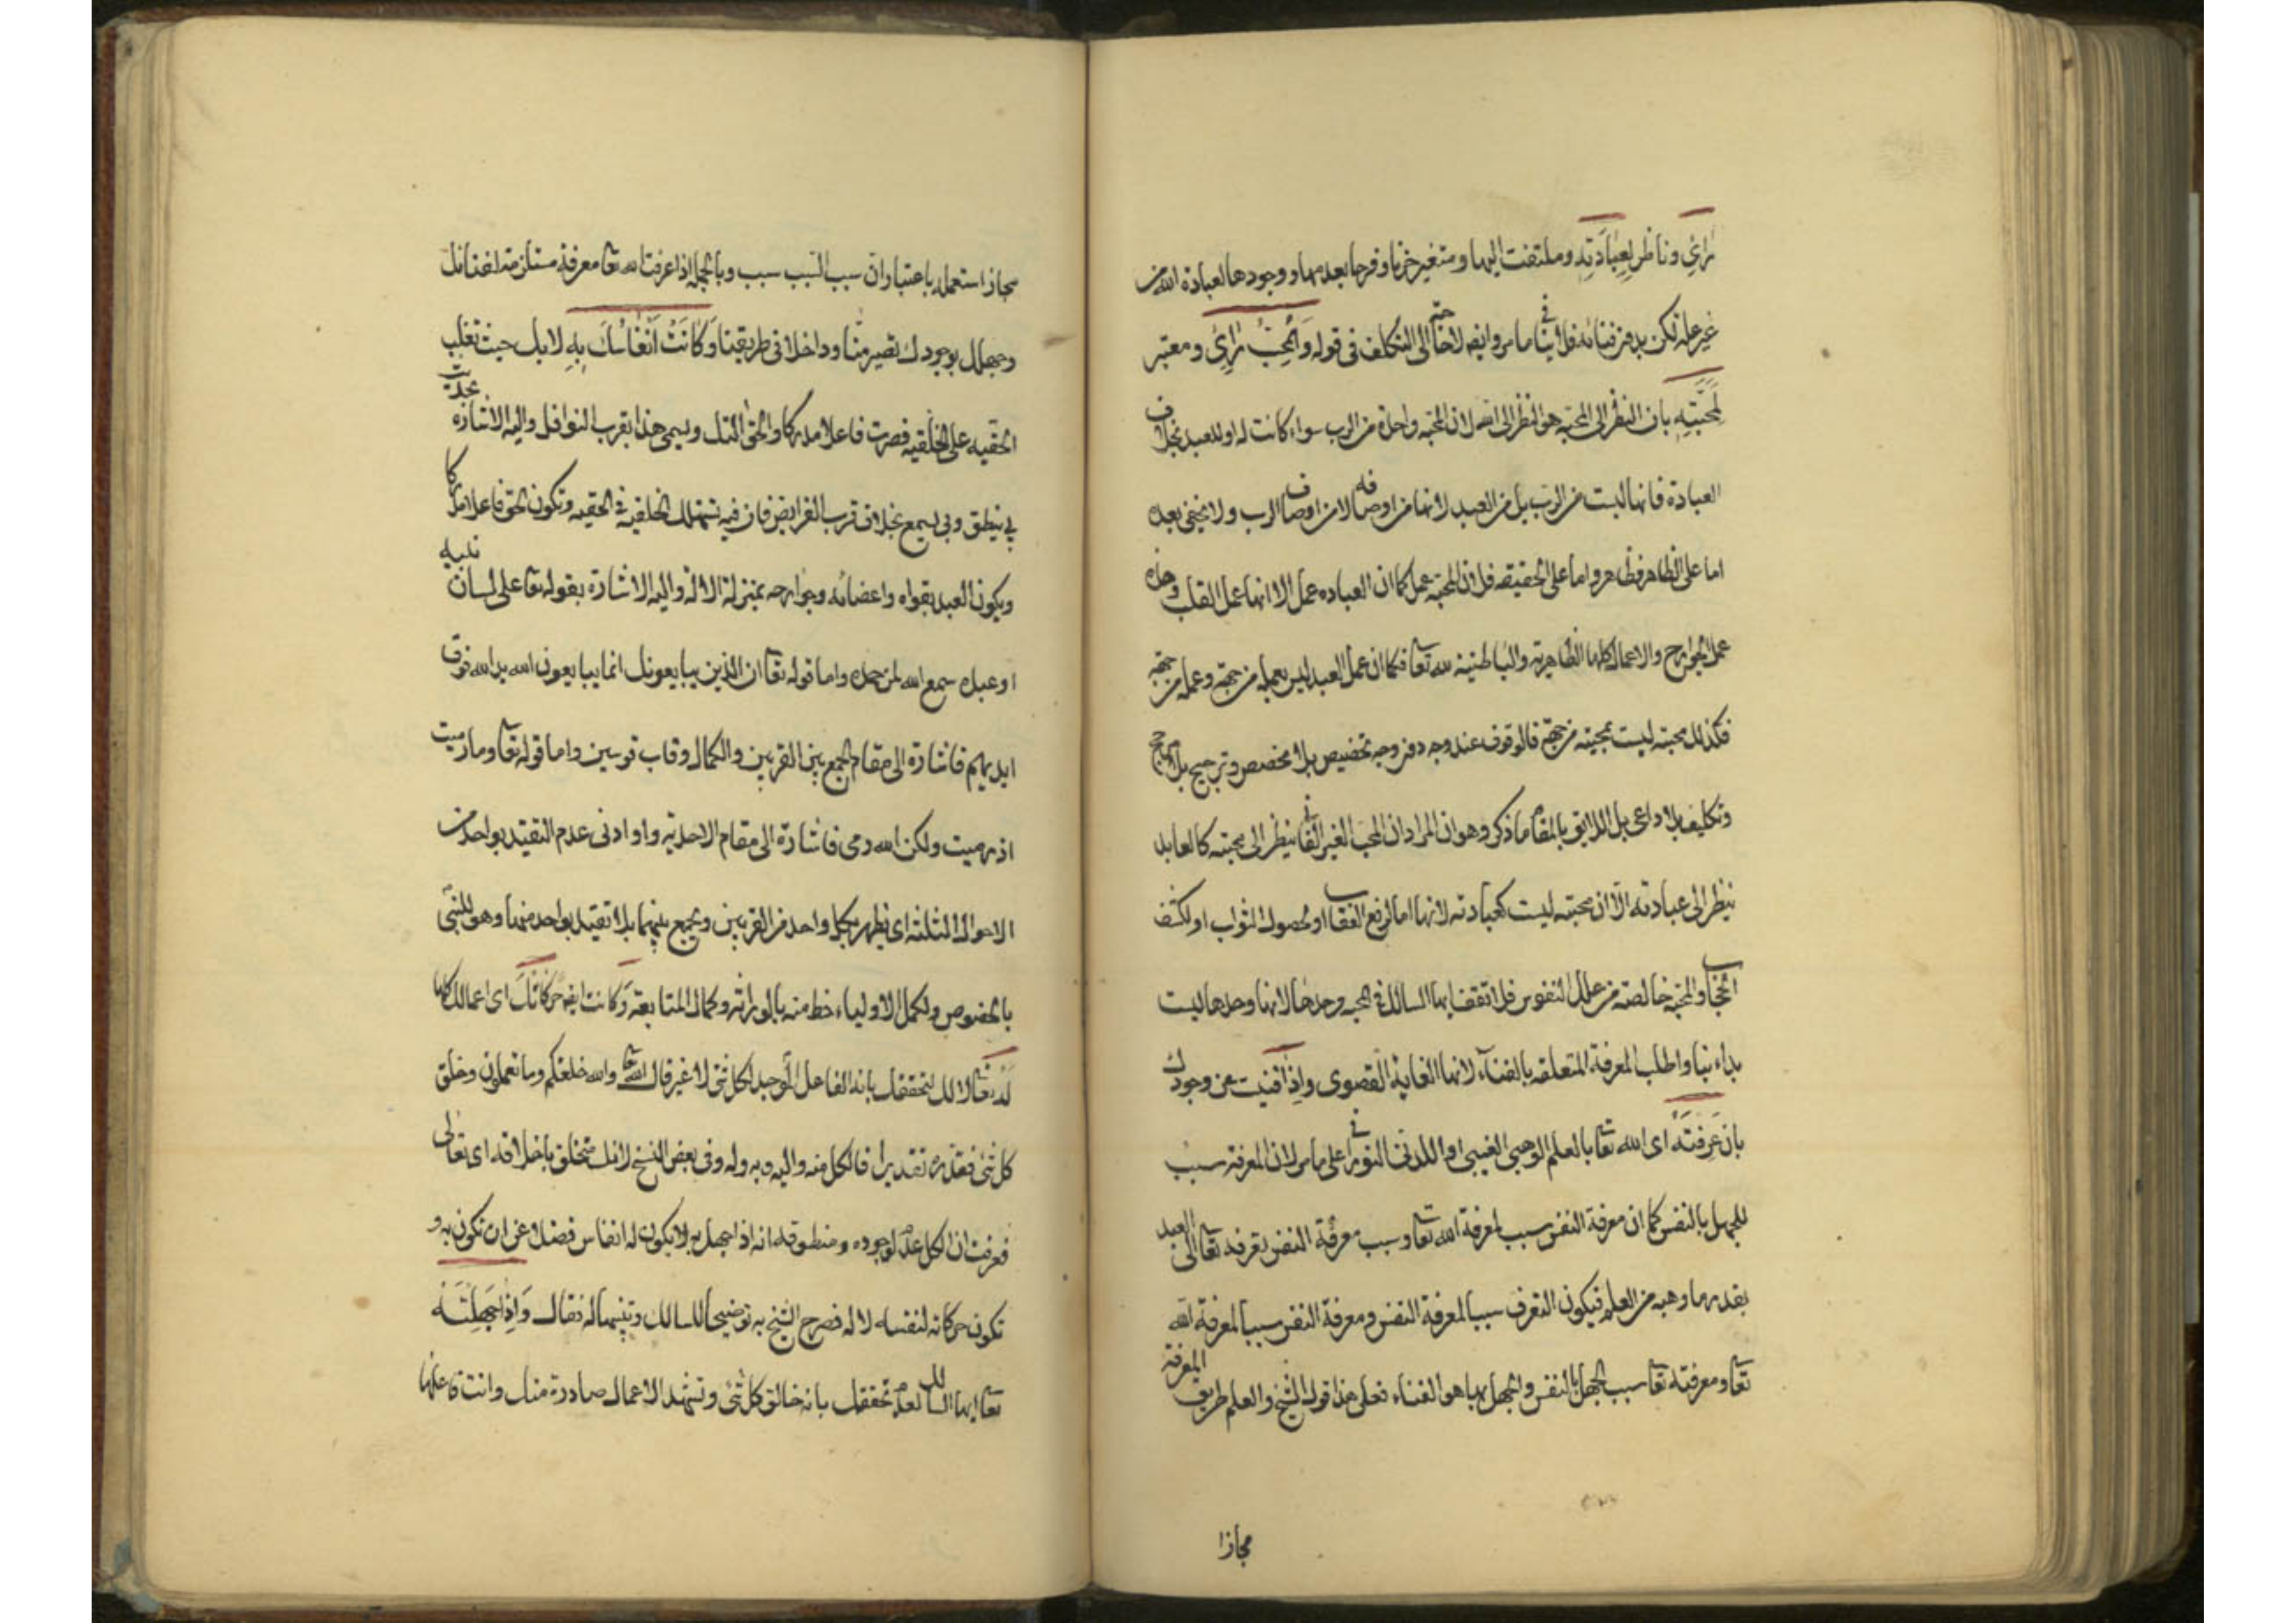 رائي وناظر لعبادته وملتفت اليها ومتغير حزنا وفرحا بعدمها ووجودها لعبادة الله من
غير علة لكن بدون فنائه فلا ينافي ما مر وانه لا حاجة الى التكلف في قوله والمحب رائي ومعتبر
لمحبته بان النظر الى المحبة هو النظر الى الله لان المحبة واحدة من الرب سواء كانت له او للعبد بخلاف
العبادة فانها ليست من الرب بل من العبد لانها من اوصافه لا من اوصاف الرب ولا يخفى بعده
اما على الظاهر فظاهر واما على الحقيقة فلان المحبة عمل كما ان العباده عمل الا انها عمل القلب وهذه
عمل الجوارح والاعمال كلها الظاهرية والباطنية لله تعا فكما ان عمل العبد ليس بعمله من جهة وعمله من جهة
فكذلك محبته ليست بمحبته من جهة فالوقوف عند وجه دون وجه تخصيص بلا مخصص وترجيح بلا مرجح
وتكليف بلا داعى بل اللايق بالمقام ما ذكر وهو ان المراد ان المحب الغير الفانى ينظر الى محبته كالعابد
ينظر الى عبادته الا ان محبته ليست كعبادته لانها اما لرفع العقاب او لحصول الثواب او لكشف
الحجاب والمحبة خالصة من علل النفوس فلا تقف ايها السالك في المحبه وحدها لانها وحدها ليست
بداء بنا واطلب المعرفة المتعلقة بالفناء لانها الغاية القصوى واذا فنيت عن وجودك
بان عرفته اى الله تعا بالعلم الوهبى الغيبى او اللدنى النورانى على ما مر لان المعرفة سبب
للجهل بالنفس كما ان معرفة النفس سبب لمعرفة الله تعا وسبب معرفة النفس تعرفه تعالى العبد
بقدر ما وهبه من العلم فيكون التعرف سببا لمعرفة النفس ومعرفة النفس سببا لمعرفة الله
تعا ومعرفته تعا سبب الجهل بالنفس والجهل بها هو الفناء فعلى هذا قول الشيخ والعلم طريق المعرفة
مجازا
مجاز استعمله باعتبار ان سبب السبب سبب وبالجملة اذا عرفت الله تعا معرفة مستلزمة لفنائك
وجهلك بوجودك تصير منا وداخلا في طريقنا وكانت انفاسك به لا بك حيث تغلب
الحقيه على الخلقيه فصرت فاعلا مدركا والحق التك ويسمى هذا بقرب النوافل واليه الاشارة بحديث
بي ينطق وبي يسمع بخلاف قرب الفرايض فان فيه تستهلك الخلقية في الحقيه وتكون الحق فاعلا مدركا
ويكون العبد بقواه واعضائه وجوارحه بمنزلة الالة واليه الاشارة بقوله تعا على لسان نبيه
او عبده سمع الله لمن حمده واما قوله تعا ان الذين يبايعونك انما يبايعون الله يد الله فوق
ايديهم فاشارة الى مقام الجمع بين القربين والكمال وقاب قوسين واما قوله تعا وما رميت
اذ رميت ولكن الله رمى فاشارة الى مقام الاحدية واو ادنى عدم التقيد بواحد من
الاحوال الثلثة اى يظهر بكل واحد من القربين ويجمع بينهما بلا تقيد بواحد منهما وهو للنبى
بالخصوص ولكمل الاولياء حظ منه بالوراثة وكمال المتابعة وكانت ايضا حركاتك اى اعمالك كلها
له تعا لا لك لتحققك بانه الفاعل الموجد لكل شئ لا غير قال الله تعا والله خلقكم وما تعملون وخلق
كل شئ فقدره تقديرا فالكل منه واليه وبه وله وفى بعض النسخ لانك متخلق باخلاقه اى تعالى
فعرفت ان الكل عدم لوجوده ومنطوقه انه اذا جهل به لا يكون له انفاس فضلا عن ان تكون به و
تكون حركاته لنفسه لا له فصرح الشيخ به توضيحا للسالك وتنبيها له فقال واذا جهلته
تعا ايها السالك لعدم تحققك بانه خالق كل شئ وتشهد الاعمال صادرة منك وانت فاعلها